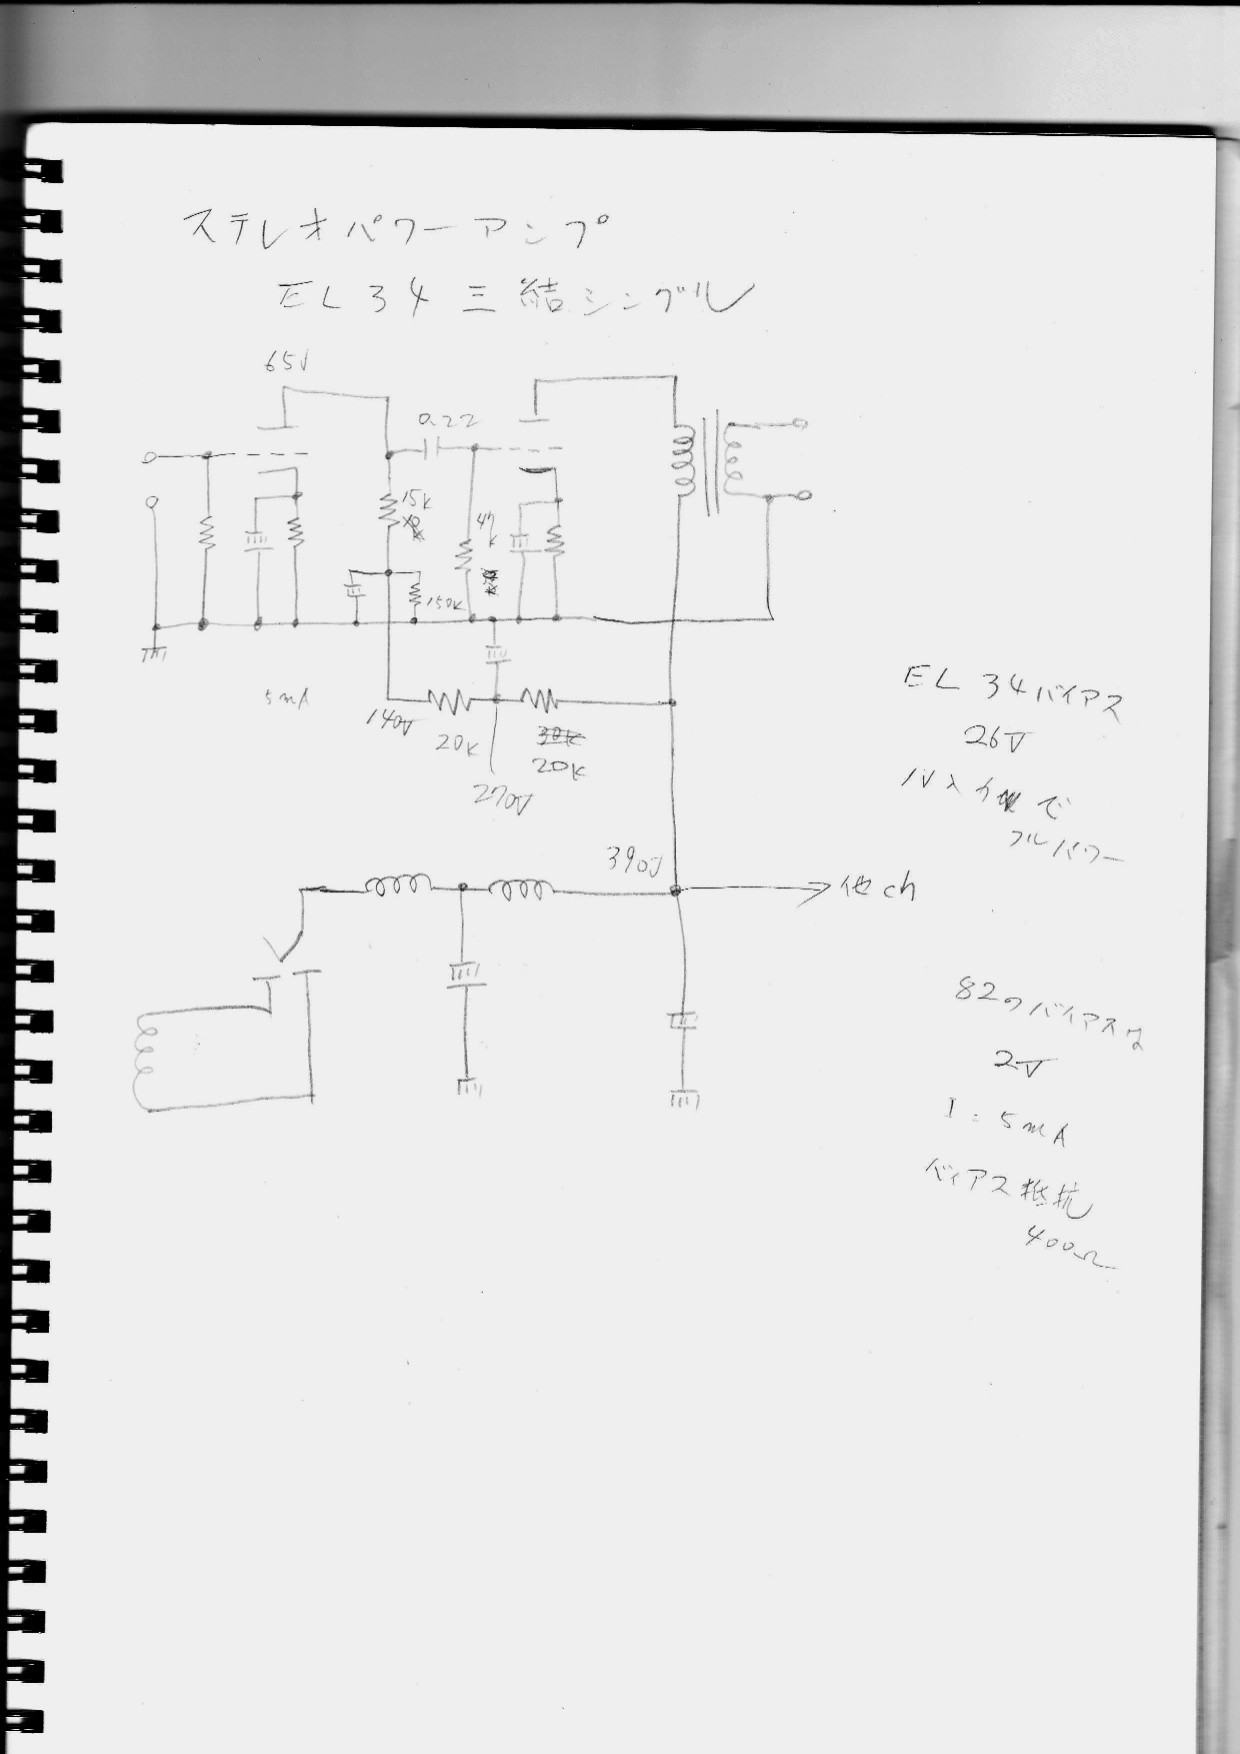 ステレオパワーアンプ
EL34 三結シングル
65V
0.22
15K
47K
150K
5mA
140V
20K
30K
20K
270V
390V
他ch
EL34バイアス
26V
1V入力で
フルパワー
82のバイアスは
2V
I = 5mA
バイアス抵抗
400Ω